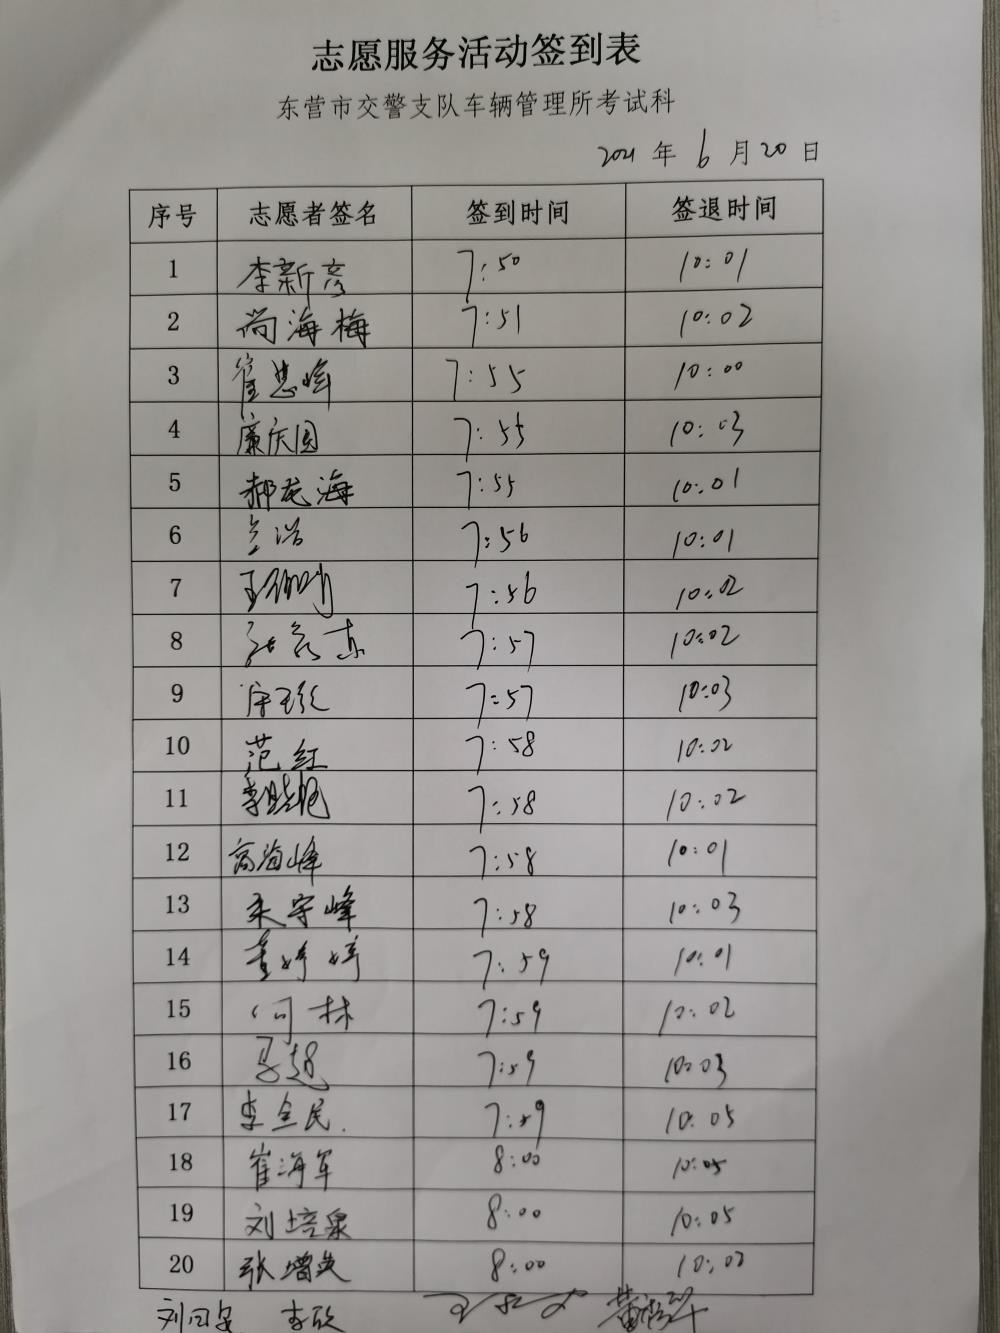 志愿服务活动签到表
东营市交警支队车辆管理所考试科
2021 年 6 月 20 日
序号 志愿者签名 签到时间 签退时间
1 李新彦 7:50 10:01
2 尚海梅 7:51 10:02
3 崔忠峰 7:55 10:00
4 廉庆国 7:55 10:03
5 郝龙海 7:55 10:01
6 7:56 10:01
7 7:56 10:02
8 7:57 10:02
9 7:57 10:03
10 范红 7:58 10:02
11 李晓艳 7:58 10:02
12 高海峰 7:58 10:01
13 宋守峰 7:58 10:03
14 董婷婷 7:59 10:01
15 何林 7:59 10:02
16 马超 7:59 10:03
17 李全民 7:59 10:05
18 崔海军 8:00 10:05
19 刘培泉 8:00 10:05
20 张增英 8:00 10:02
李欣